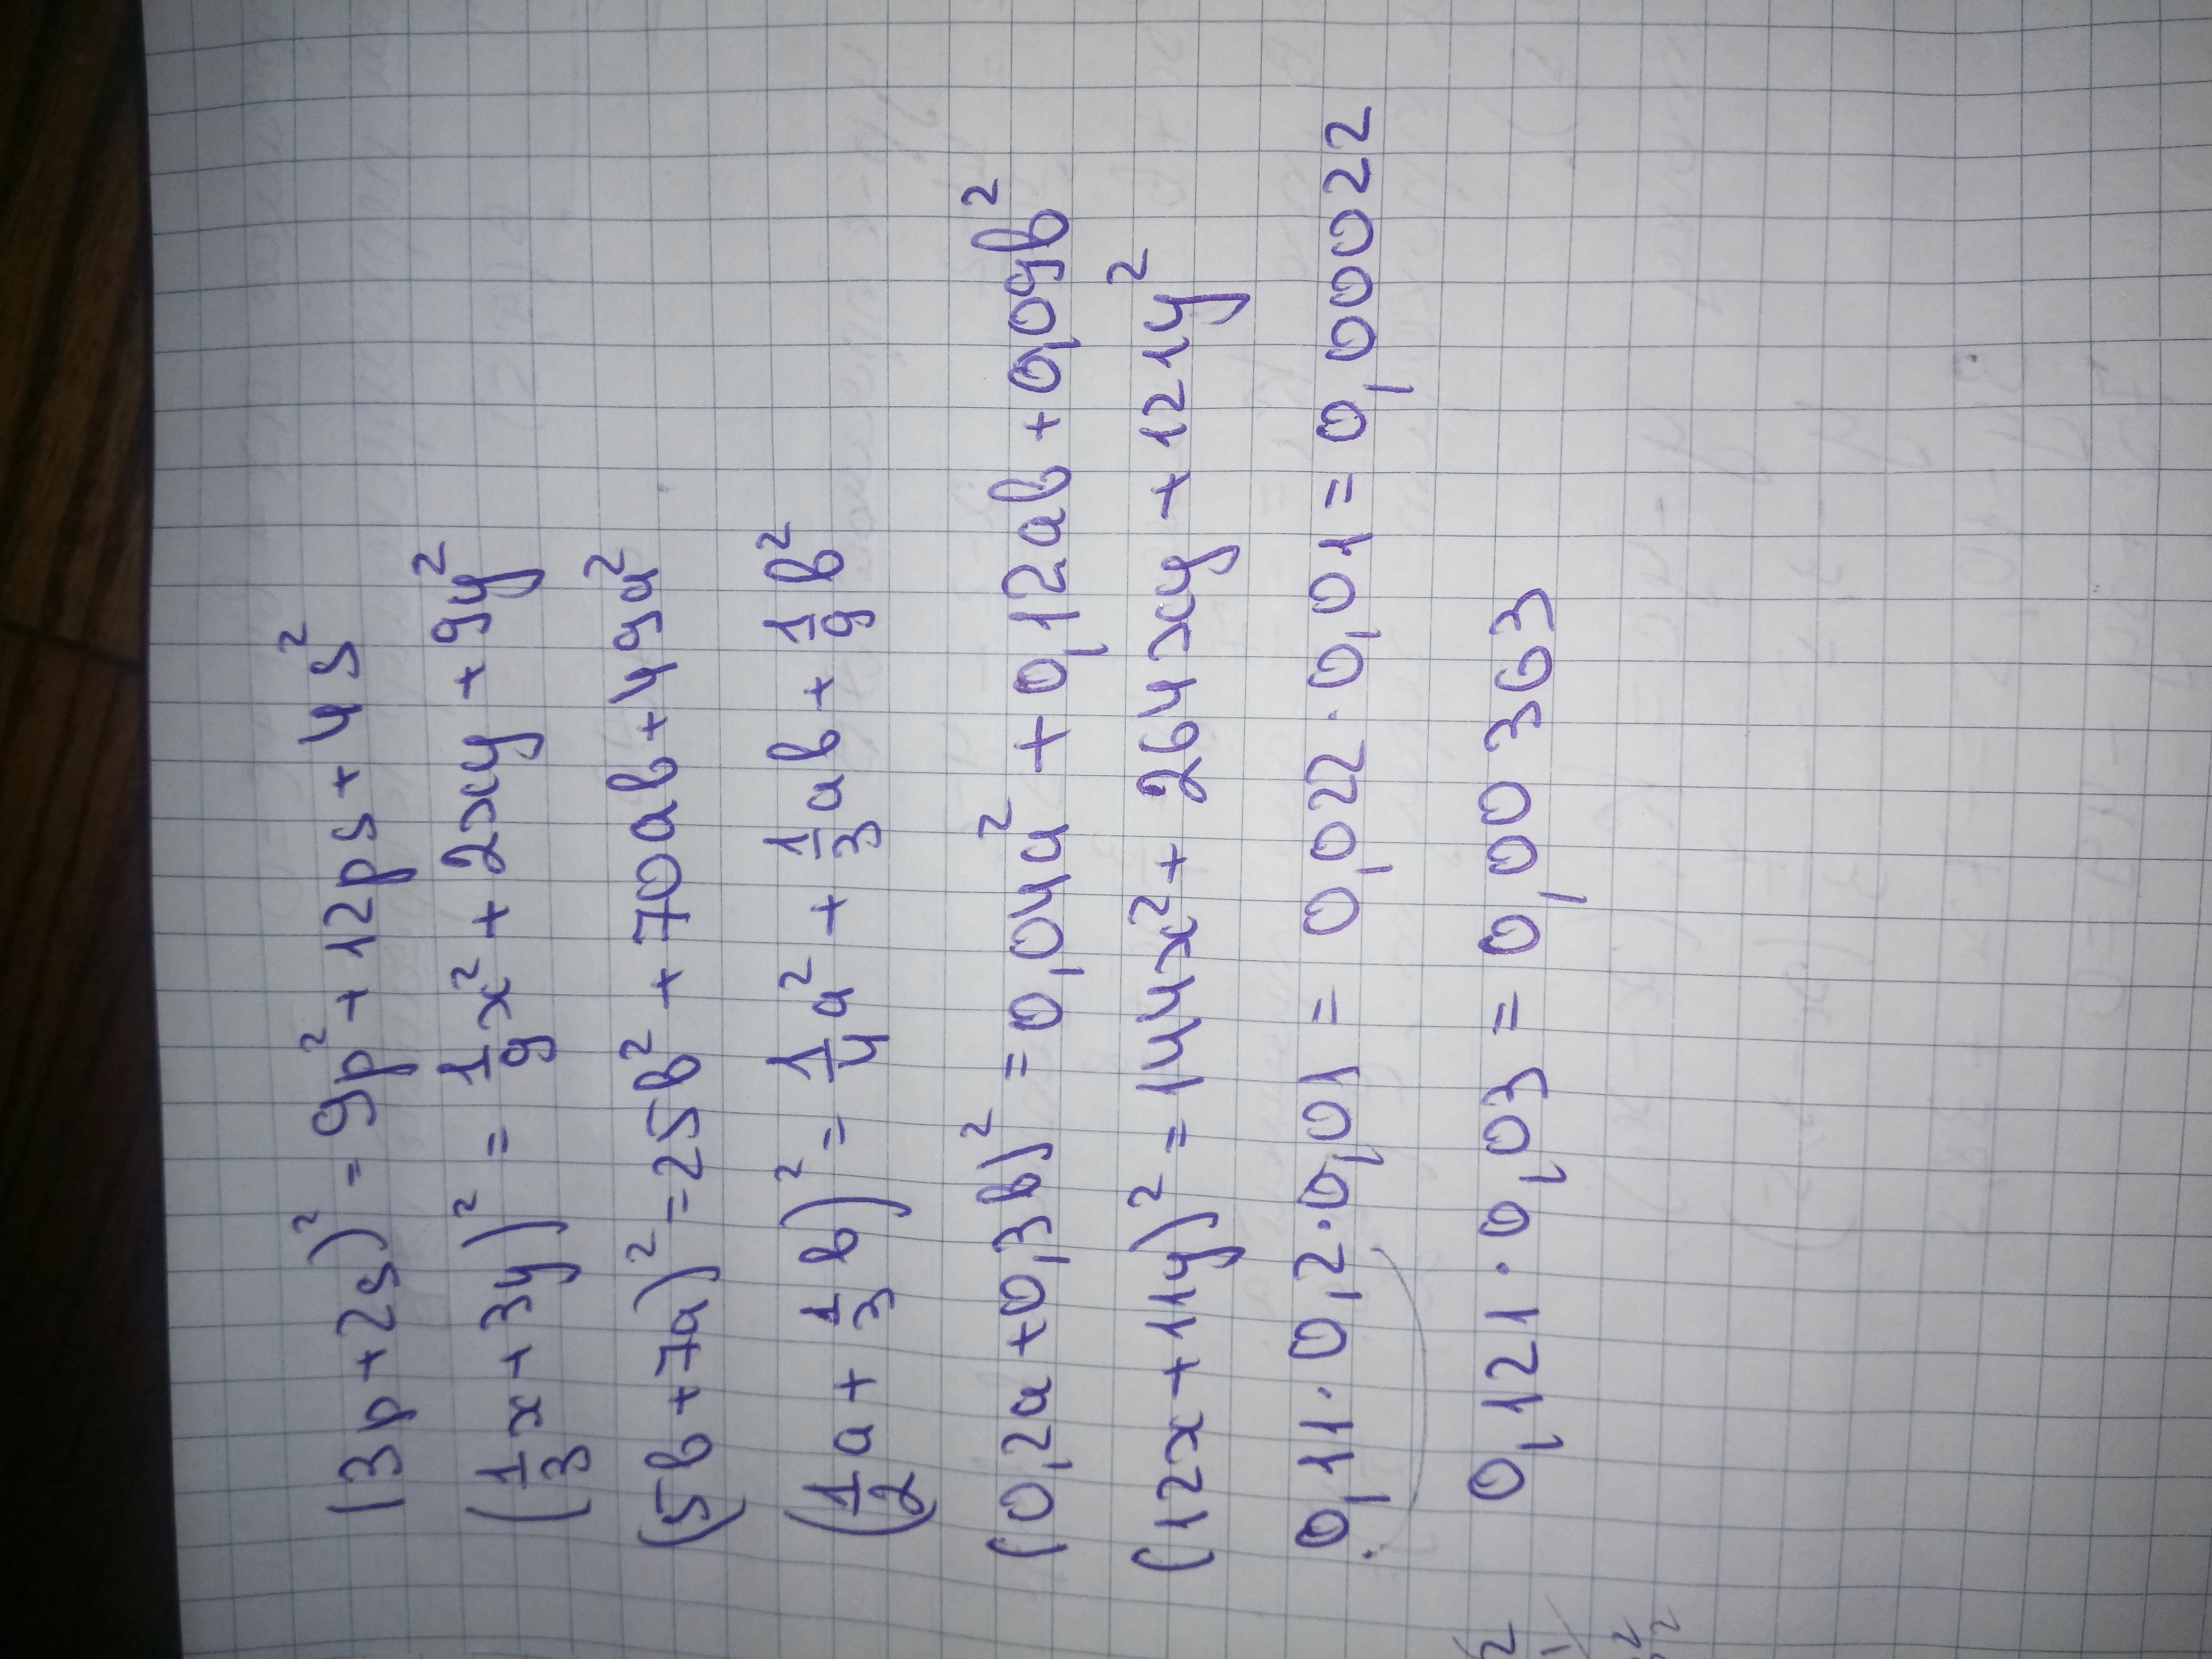 (3p+2s)² = 9p² + 12ps + 4s²
(1/3x + 3y)² = 1/9x² + 2xy + 9y²
(5b + 7a)² = 25b² + 70ab + 49a²
(1/2a + 1/3b)² = 1/4a² + 1/3ab + 1/9b²
(0,2a + 0,3b)² = 0,04a² + 0,12ab + 0,09b²
(12x + 11y)² = 144x² + 264xy + 121y²
0,11 · 0,2 · 0,01 = 0,022 · 0,01 = 0,00022
0,121 · 0,03 = 0,00363